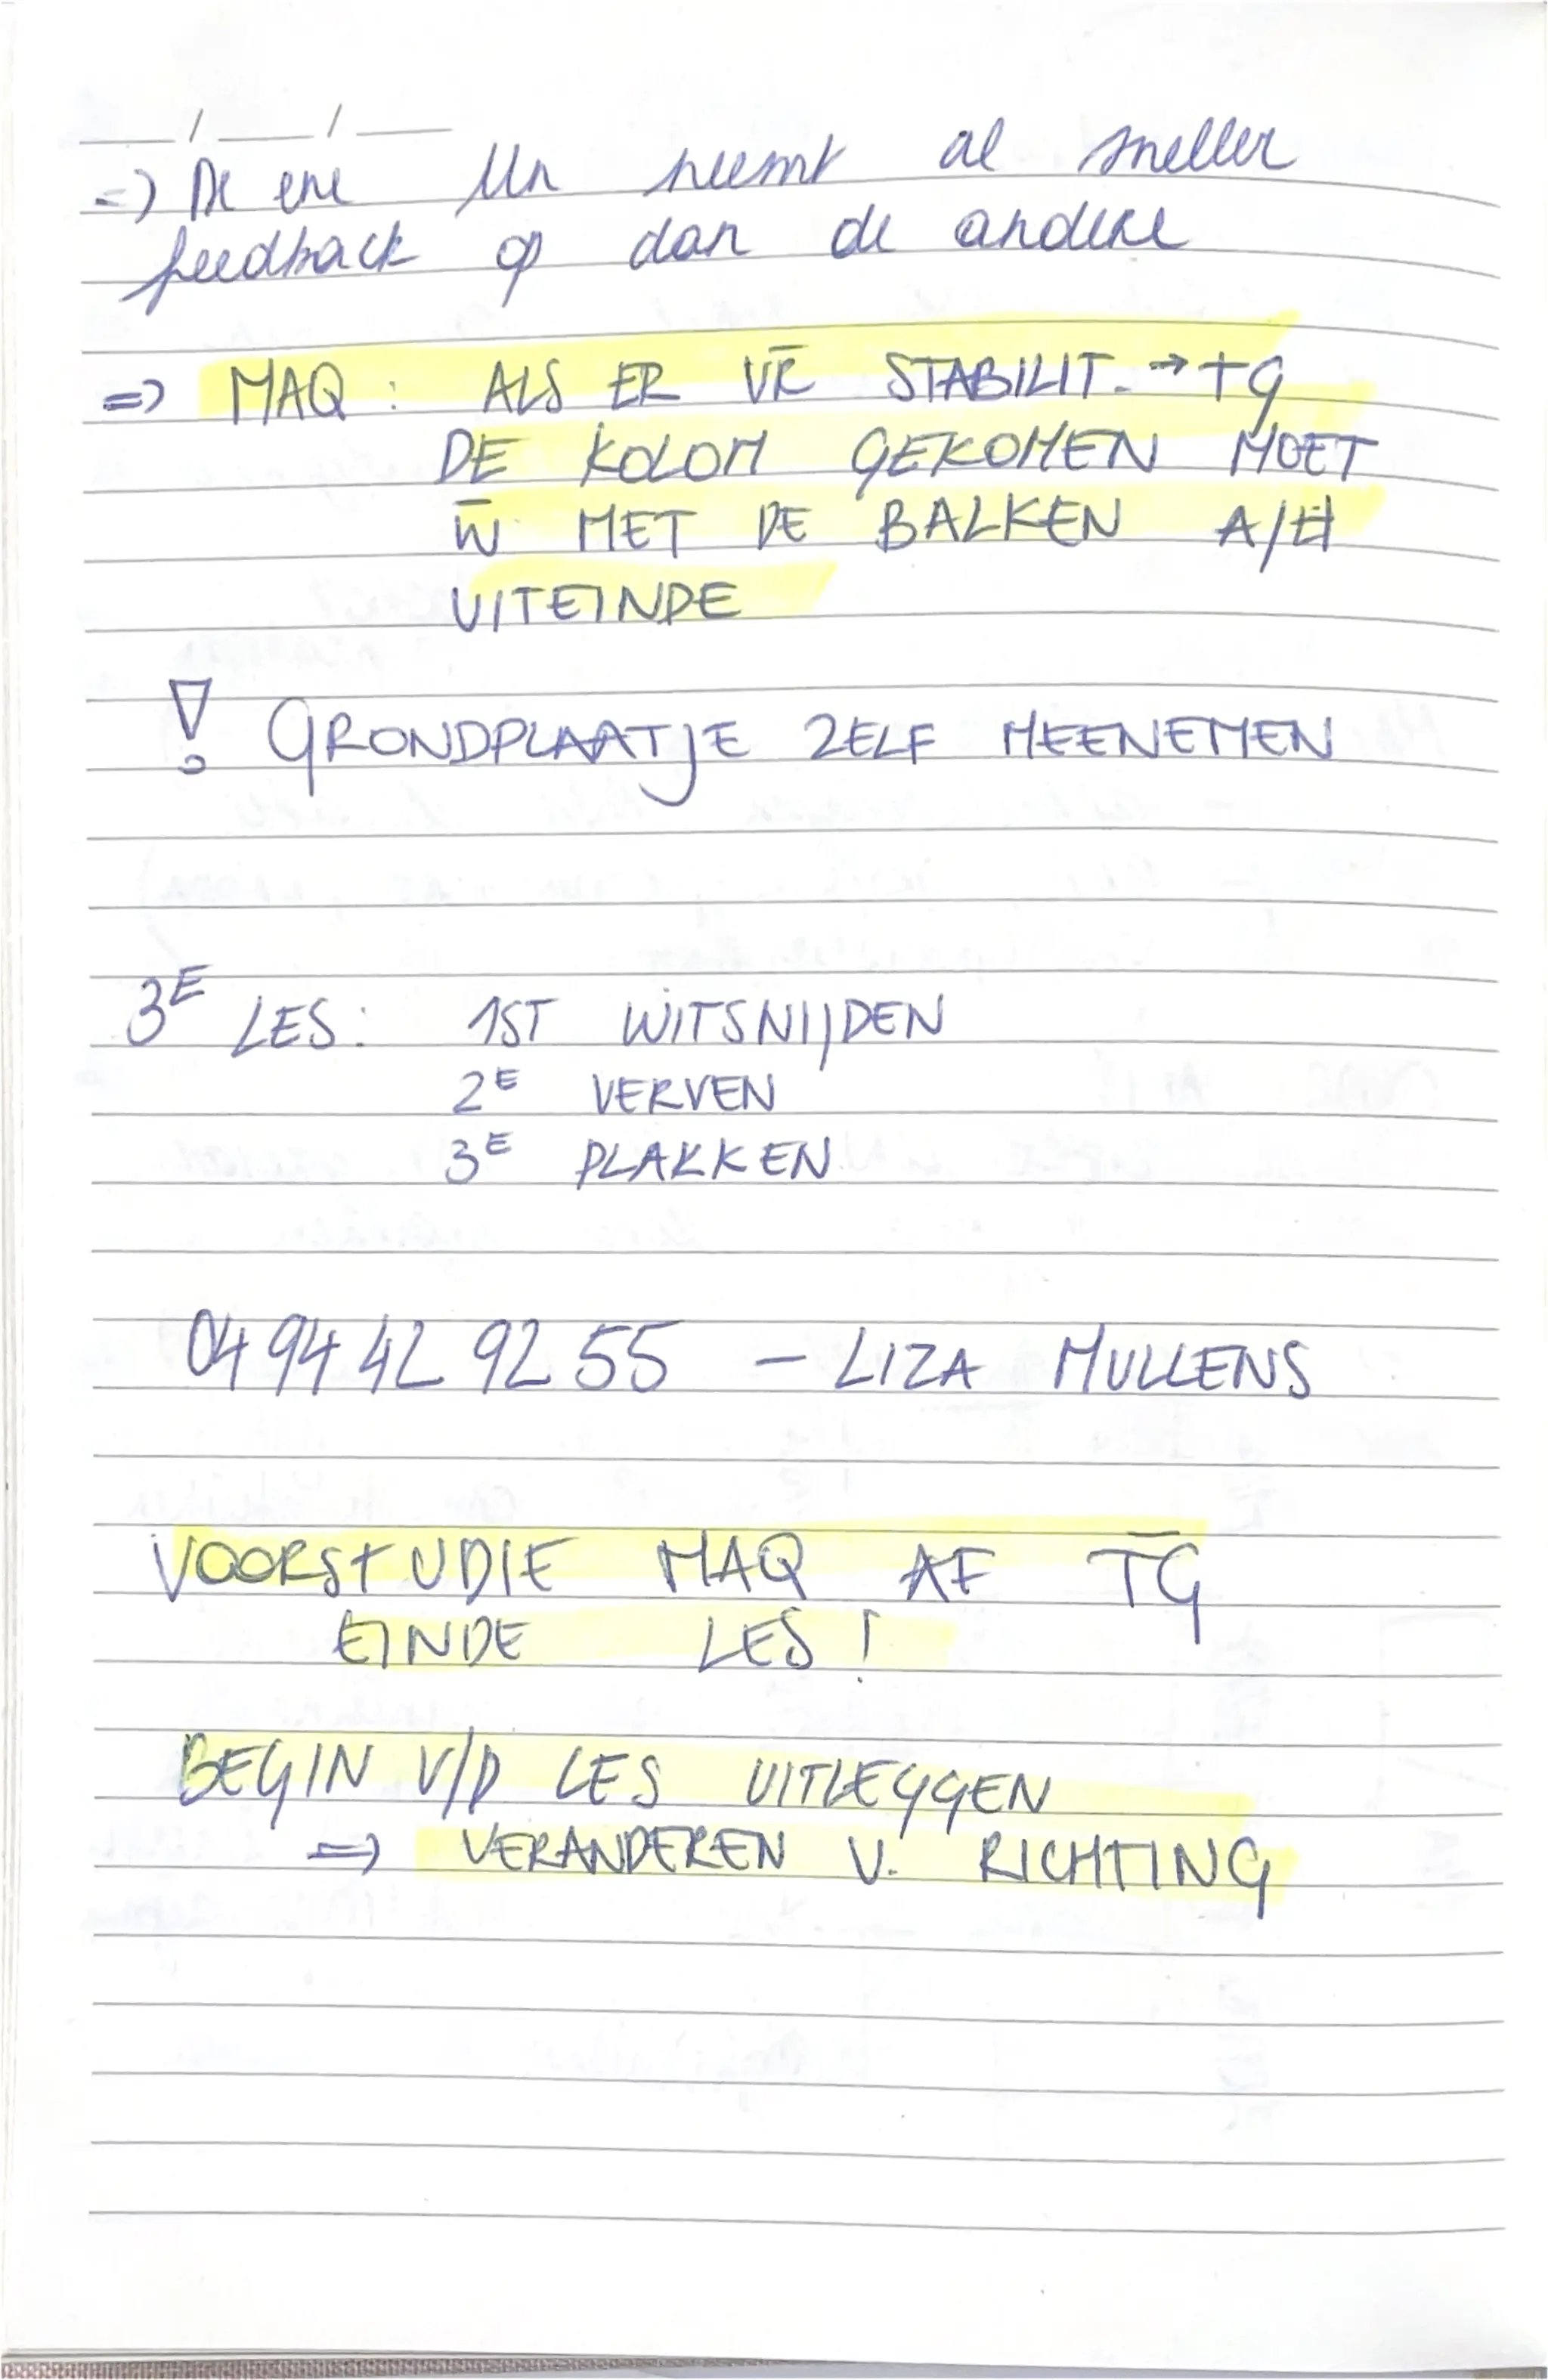 __/__/__
=> De ene lln neemt al sneller
feedback op dan de andere
=> MAQ : ALS ER VR̄ STABILIT. → TG
DE KOLOM GEKOMEN MOET
W̄ MET DE BALKEN A/H
UITEINDE
! GRONDPLAATJE ZELF MEENEMEN
3E LES: 1ST WITSNIJDEN
2E VERVEN
3E PLAKKEN
0494 42 92 55 - LIZA MULLENS
VOORSTUDIE MAQ AF T̄G
EINDE LES !
BEGIN V/D LES UITLEGGEN
=> VERANDEREN V. RICHTING